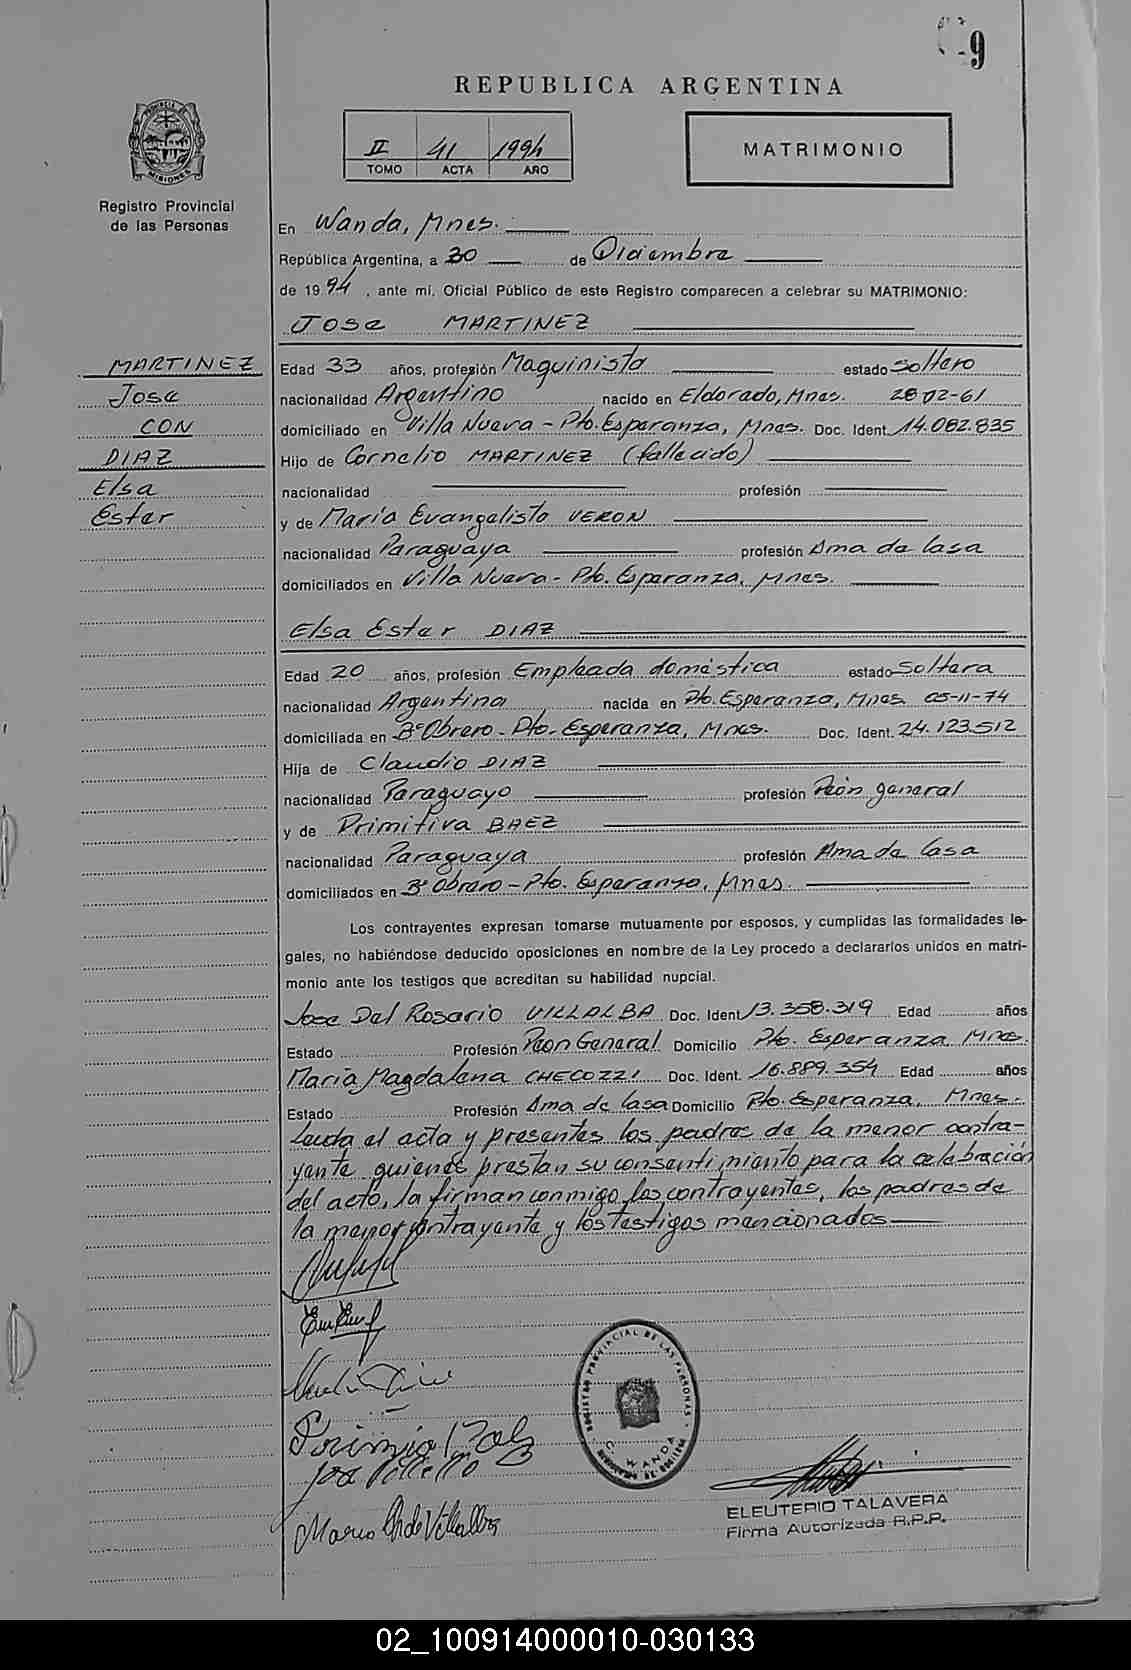 9
REPUBLICA ARGENTINA
II 41 1994
TOMO ACTA AÑO
MATRIMONIO
PROVINCIA DE MISIONES
Registro Provincial
de las Personas
En Wanda, Mnes.
República Argentina, a 30 de Diciembre
de 1994, ante mí, Oficial Público de este Registro comparecen a celebrar su MATRIMONIO:
Jose MARTINEZ
MARTINEZ
Jose
CON
DIAZ
Elsa
Ester
Edad 33 años, profesión Maquinista estado Soltero
nacionalidad Argentino nacido en Eldorado, Mnes. 28-02-61
domiciliado en Villa Nueva - Pto. Esperanza, Mnes. Doc. Ident. 14.082.835
Hijo de Cornelio MARTINEZ (fallecido)
nacionalidad profesión
y de María Evangelista VERON
nacionalidad Paraguaya profesión Ama de Casa
domiciliados en Villa Nueva - Pto. Esperanza, Mnes.
Elsa Ester DIAZ
Edad 20 años, profesión Empleada doméstica estado Soltera
nacionalidad Argentina nacida en Pto. Esperanza, Mnes 05-11-74
domiciliada en Bº Obrero - Pto. Esperanza, Mnes. Doc. Ident. 24.123.512
Hija de Claudio DIAZ
nacionalidad Paraguayo profesión Peón general
y de Primitiva BAEZ
nacionalidad Paraguaya profesión Ama de Casa
domiciliados en Bº Obrero - Pto. Esperanza, Mnes.
Los contrayentes expresan tomarse mutuamente por esposos, y cumplidas las formalidades le-
gales, no habiéndose deducido oposiciones en nombre de la Ley procedo a declararlos unidos en matri-
monio ante los testigos que acreditan su habilidad nupcial.
Jose Del Rosario VILLALBA Doc. Ident 13.358.319 Edad años
Estado Profesión Peon General Domicilio Pto. Esperanza Mnes.
María Magdalena CHECOZZI Doc. Ident. 16.889.354 Edad años
Estado Profesión Ama de Casa Domicilio Pto. Esperanza, Mnes.
Leida el acta y presentes los padres de la menor contra-
yente quienes prestan su consentimiento para la celebración
del acto, la firman conmigo los contrayentes, los padres de
la menor contrayente y los testigos mencionados
REGISTRO PROVINCIAL DE LAS PERSONAS
WANDA
ELEUTERIO TALAVERA
Firma Autorizada R.P.P.
02_100914000010-030133